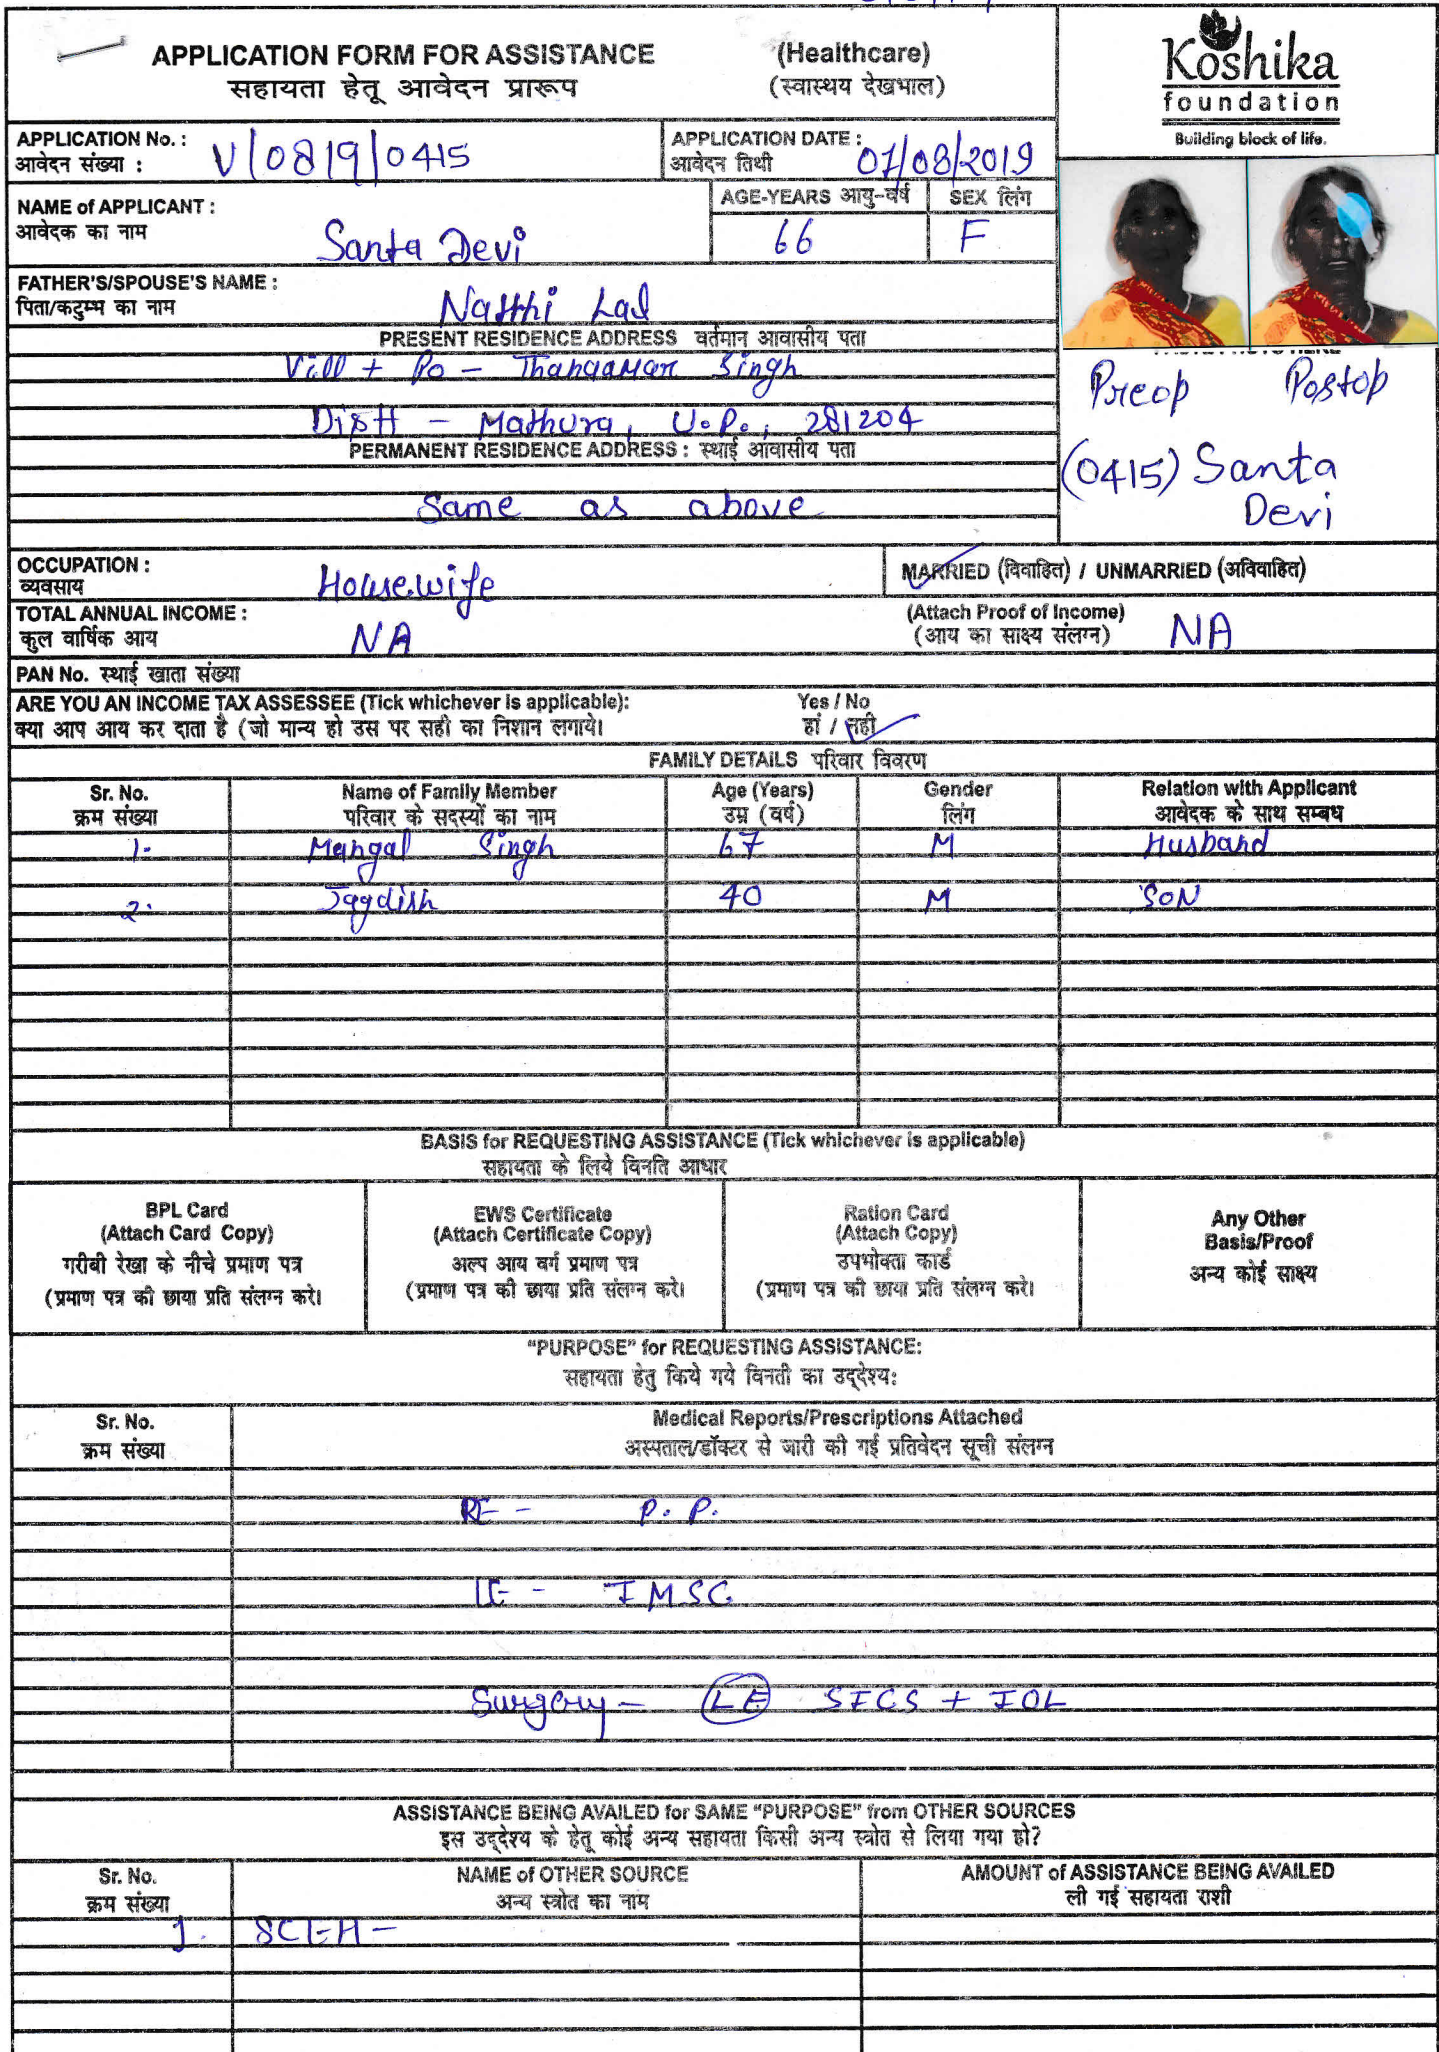 APPLICATION FORM FOR ASSISTANCE (Healthcare)
सहायता हेतू आवेदन प्रारूप (स्वास्थय देखभाल)
Koshika
foundation
Building block of life.
APPLICATION No. : V/0819/0415
आवेदन संख्या :
APPLICATION DATE : 07/08/2019
आवेदन तिथी
NAME of APPLICANT : Santa Devi
आवेदक का नाम
AGE-YEARS आयु-वर्ष 66
SEX लिंग F
FATHER'S/SPOUSE'S NAME : Natthi Lal
पिता/कटुम्भ का नाम
PRESENT RESIDENCE ADDRESS वर्तमान आवासीय पता
Vill + Po - Singh
Distt - Mathura, U.P., 281204
PERMANENT RESIDENCE ADDRESS : स्थाई आवासीय पता
Same as above
Preop Postop
(0415) Santa
Devi
OCCUPATION : Housewife
व्यवसाय
MARRIED (विवाहित) / UNMARRIED (अविवाहित)
TOTAL ANNUAL INCOME : NA
कुल वार्षिक आय
(Attach Proof of Income) NA
(आय का साक्ष्य संलग्न)
PAN No. स्थाई खाता संख्या
ARE YOU AN INCOME TAX ASSESSEE (Tick whichever is applicable): Yes / No
क्या आप आय कर दाता है (जो मान्य हो उस पर सही का निशान लगाये। हां / नही
FAMILY DETAILS परिवार विवरण
Sr. No. Name of Family Member Age (Years) Gender Relation with Applicant
क्रम संख्या परिवार के सदस्यों का नाम उम्र (वर्ष) लिंग आवेदक के साथ सम्बध
1. Mangal Singh 67 M Husband
2. Jagdish 40 M SON
BASIS for REQUESTING ASSISTANCE (Tick whichever is applicable)
सहायता के लिये विनति आधार
BPL Card
(Attach Card Copy)
गरीबी रेखा के नीचे प्रमाण पत्र
(प्रमाण पत्र की छाया प्रति संलग्न करे।
EWS Certificate
(Attach Certificate Copy)
अल्प आय वर्ग प्रमाण पत्र
(प्रमाण पत्र की छाया प्रति संलग्न करे।
Ration Card
(Attach Copy)
उपभोक्ता कार्ड
(प्रमाण पत्र की छाया प्रति संलग्न करे।
Any Other
Basis/Proof
अन्य कोई साक्ष्य
"PURPOSE" for REQUESTING ASSISTANCE:
सहायता हेतु किये गये विनती का उद्देश्य:
Sr. No. Medical Reports/Prescriptions Attached
क्रम संख्या अस्पताल/डॉक्टर से जारी की गई प्रतिवेदन सूची संलग्न
RE - P. P.
LE - IMSC
Surgery - LE SICS + IOL
ASSISTANCE BEING AVAILED for SAME "PURPOSE" from OTHER SOURCES
इस उद्देश्य के हेतू कोई अन्य सहायता किसी अन्य स्त्रोत से लिया गया हो?
Sr. No. NAME of OTHER SOURCE AMOUNT of ASSISTANCE BEING AVAILED
क्रम संख्या अन्य स्त्रोत का नाम ली गई सहायता राशी
1. SCEH -